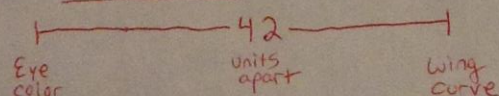 42
Eye color
units apart
wing curve